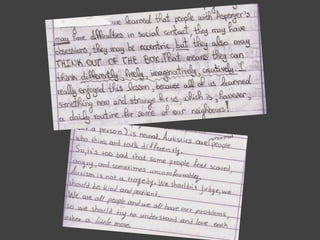 we learned that people with Asperger's
may have difficulties in social contact, they may have
obsessions, they may be eccentric, but they also may
THINK OUT OF THE BOX. That means they can
think differently, freely, imaginatively, creatively. I
really enjoyed this lesson, because all of us learned
something new and strange for us, which is, however,
a daily routine for some of our neighbours!
a person) is neural. Autistics are people
who think and work differently.
So, it's too bad that some people feel scared,
angry, and sometimes uncomfortably.
Autism is not a tragedy. We shouldn't judge, we
should be kind and patient.
We are all people and we all have our problems,
so we should try to understand and love each
other a little more.